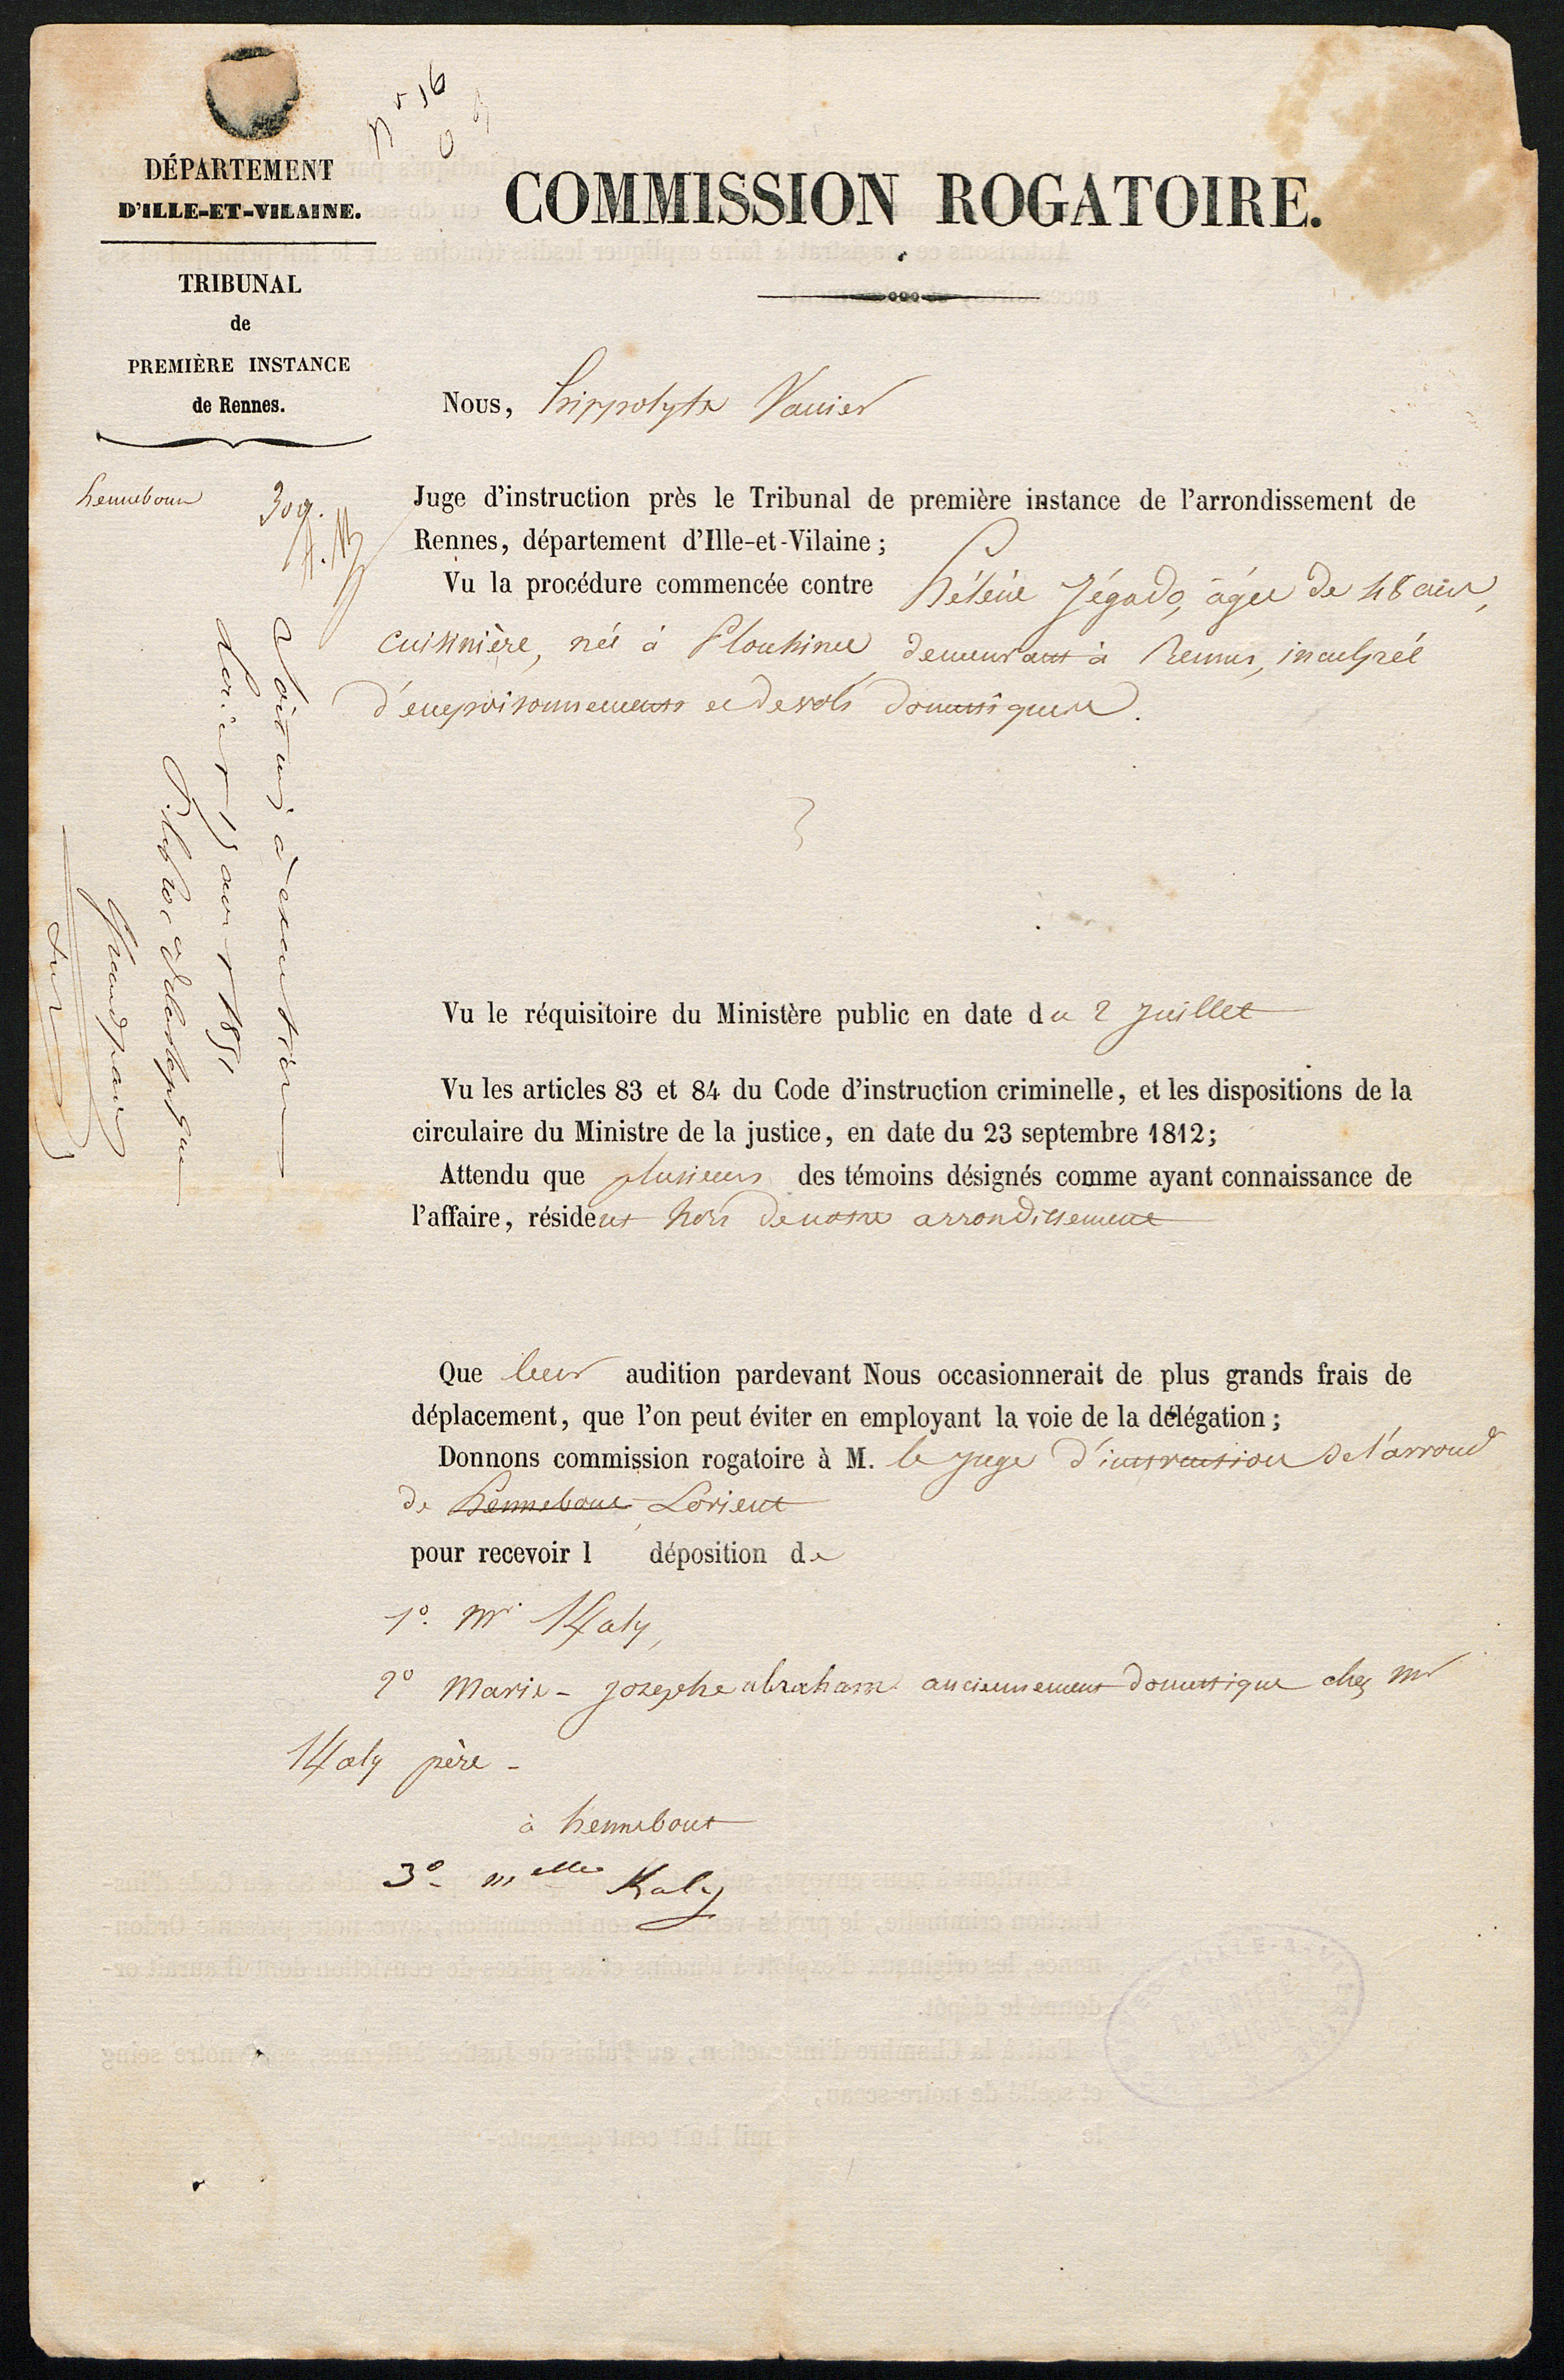 DÉPARTEMENT
D'ILLE-ET-VILAINE.
TRIBUNAL
de
PREMIÈRE INSTANCE
de Rennes.
COMMISSION ROGATOIRE.
Nous, hippolyte Vannier
hennebont
309.
Juge d'instruction près le Tribunal de première instance de l'arrondissement de
Rennes, département d'Ille-et-Vilaine;
Vu la procédure commencée contre hélène Jégado, âgée de 48 ans,
cuisinière, née à Plouhinec demeurant à Rennes, inculpée
d'empoisonnements et de vols domestiques.
Vu le réquisitoire du Ministère public en date du 2 juillet
Vu les articles 83 et 84 du Code d'instruction criminelle, et les dispositions de la
circulaire du Ministre de la justice, en date du 23 septembre 1812;
Attendu que plusieurs des témoins désignés comme ayant connaissance de
l'affaire, résident hors de notre arrondissement
Que leur audition pardevant Nous occasionnerait de plus grands frais de
déplacement, que l'on peut éviter en employant la voie de la délégation;
Donnons commission rogatoire à M. le juge d'instruction de l'arrond
de hennebont Lorient
pour recevoir l déposition de
1º. Mr Kaly,
2º Marie-josephe abraham anciennement domestique chez Mr
Kaly père -
à hennebont
3º- Melle Kaly
Soit mis à exécution
Lorient 1851